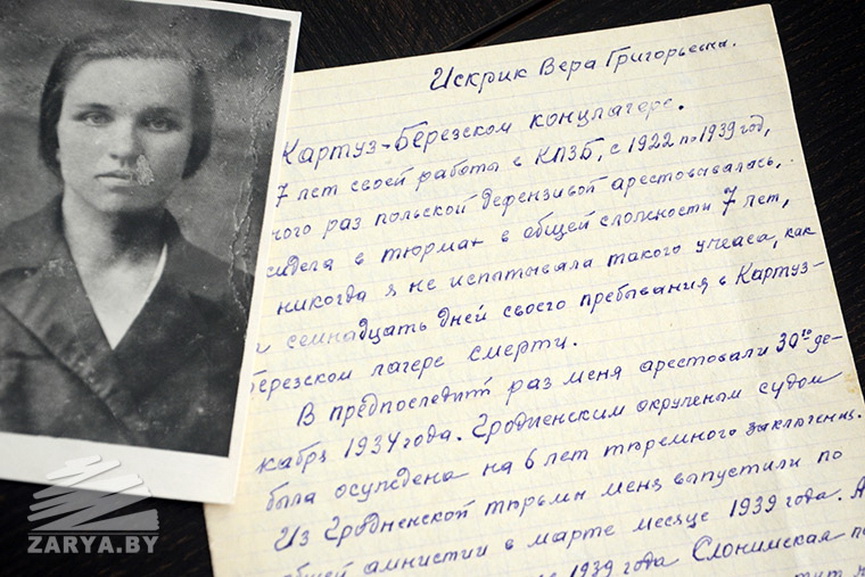 Искрик Вера Григорьевна.
Картуз-Березском концлагере.
7 лет своей работы в КПЗБ, с 1922 по 1939 год,
ного раз польской дефензивой арестовывалась,
сидела в тюрмах в общей сложности 7 лет,
никогда я не испытывала такого ужаса, как
и семнадцать дней своего пребывания в Картуз-
березском лагере смерти.
В предпоследний раз меня арестовали 30го де-
кабря 1934 года. Гродненским окружным судом
была осуждена на 6 лет тюремного заключения.
Из Гродненской тюрьмы меня выпустили по
общей амнистии в марте месяце 1939 года. А
1939 года Слонимская
ZARYA.BY